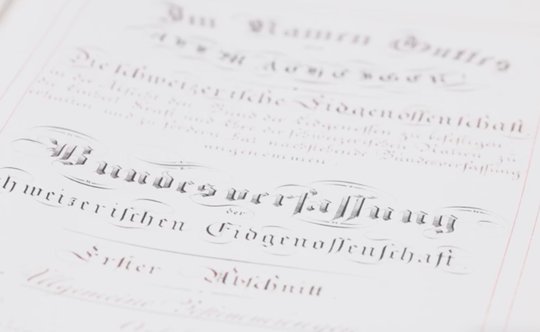 Im Namen Gottes
des Allmächtigen.
Die schweizerische Eidgenossenschaft
in der Absicht, den Bund der Eidgenossen zu befestigen,
die Einheit, Kraft und Ehre der schweizerischen Nation zu
erhalten und zu fördern, hat nachstehende Bundesverfassung
angenommen:
Bundesverfassung
der
schweizerischen Eidgenossenschaft.
Erster Abschnitt
Allgemeine Bestimmungen